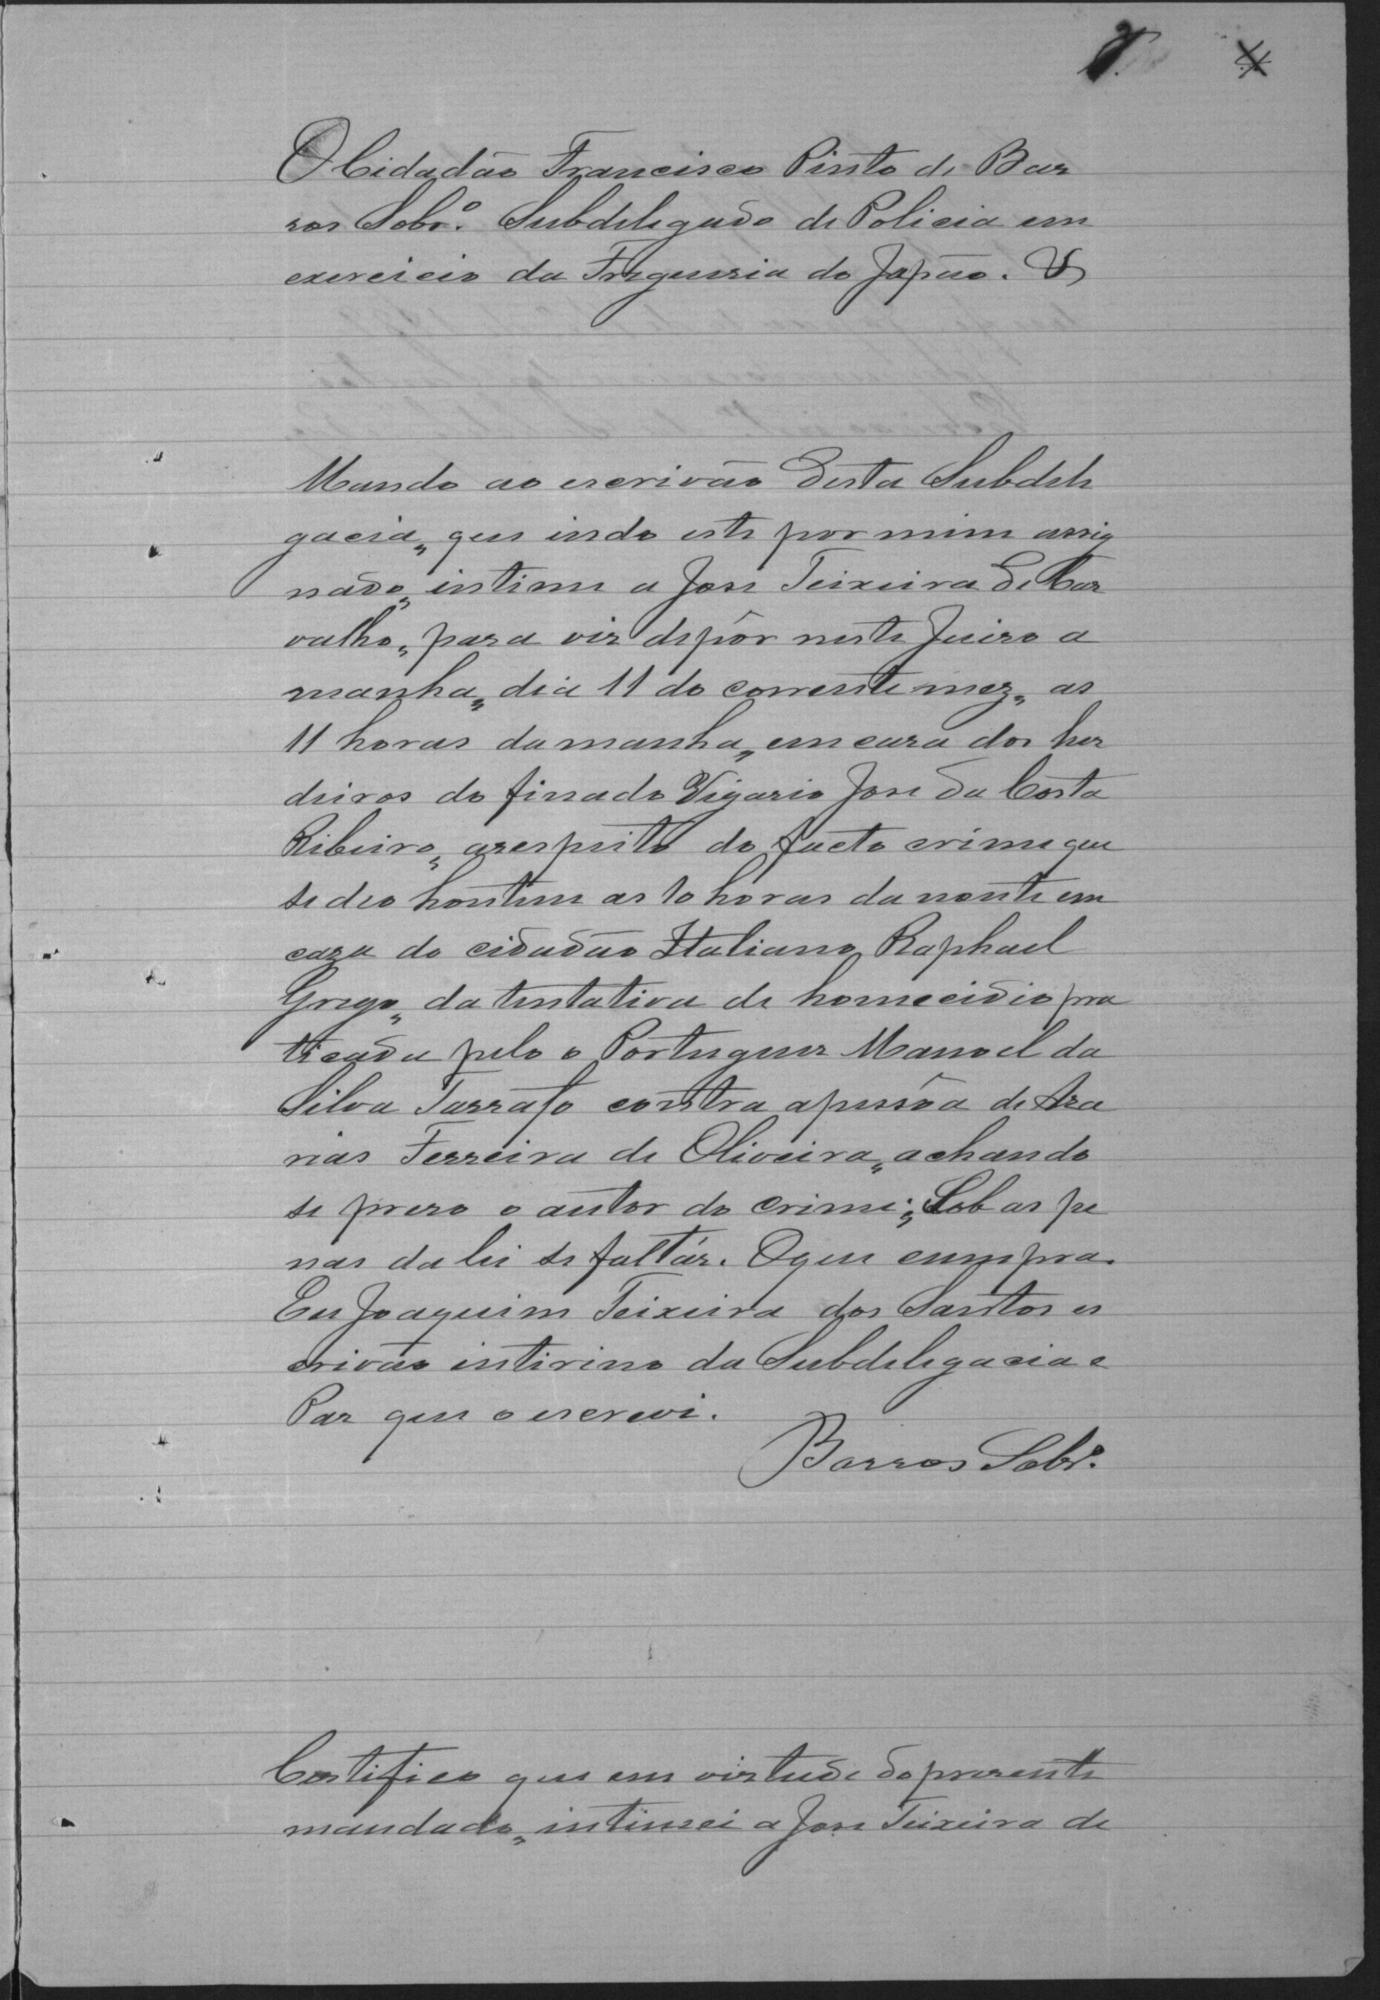 O Cidadão Francisco Pinto de Bar
ros Sobr.º Subdelegado de Policia em
exercicio da Freguesia do Japão. &
Mando ao escrivão desta Subdele
gacia„ que indo este por mim assig
nado„ intime a Jose Teixeira de Car
valho„ para vir depôr neste Juizo a
manha„ dia 11 do corrente mez„ as
11 horas da manha„ em caza dos her
deiros do finado Vigario Jose da Costa
Ribeiro„ arespeito do facto crime que
se deo hontem as 10 horas da noute em
caza do cidadão Italiano Raphael
Grego„ da tentativa de homecidio pra
ticada pelo o Portuguez Manoel da
Silva Tarrafo contra apessôa de Aza
rias Ferreira de Oliveira„ achando
se prezo o autor do crime; Sob as pe
nas da lei se faltár. Oque cumpra.
Eu Joaquim Teixeira dos Santos es
crivão intirino da Subdelegacia e
Paz que o escrevi.
Barros Sobr.º
Certifico que em virtude do prezente
mandado„ intimei a Jose Teixeira de